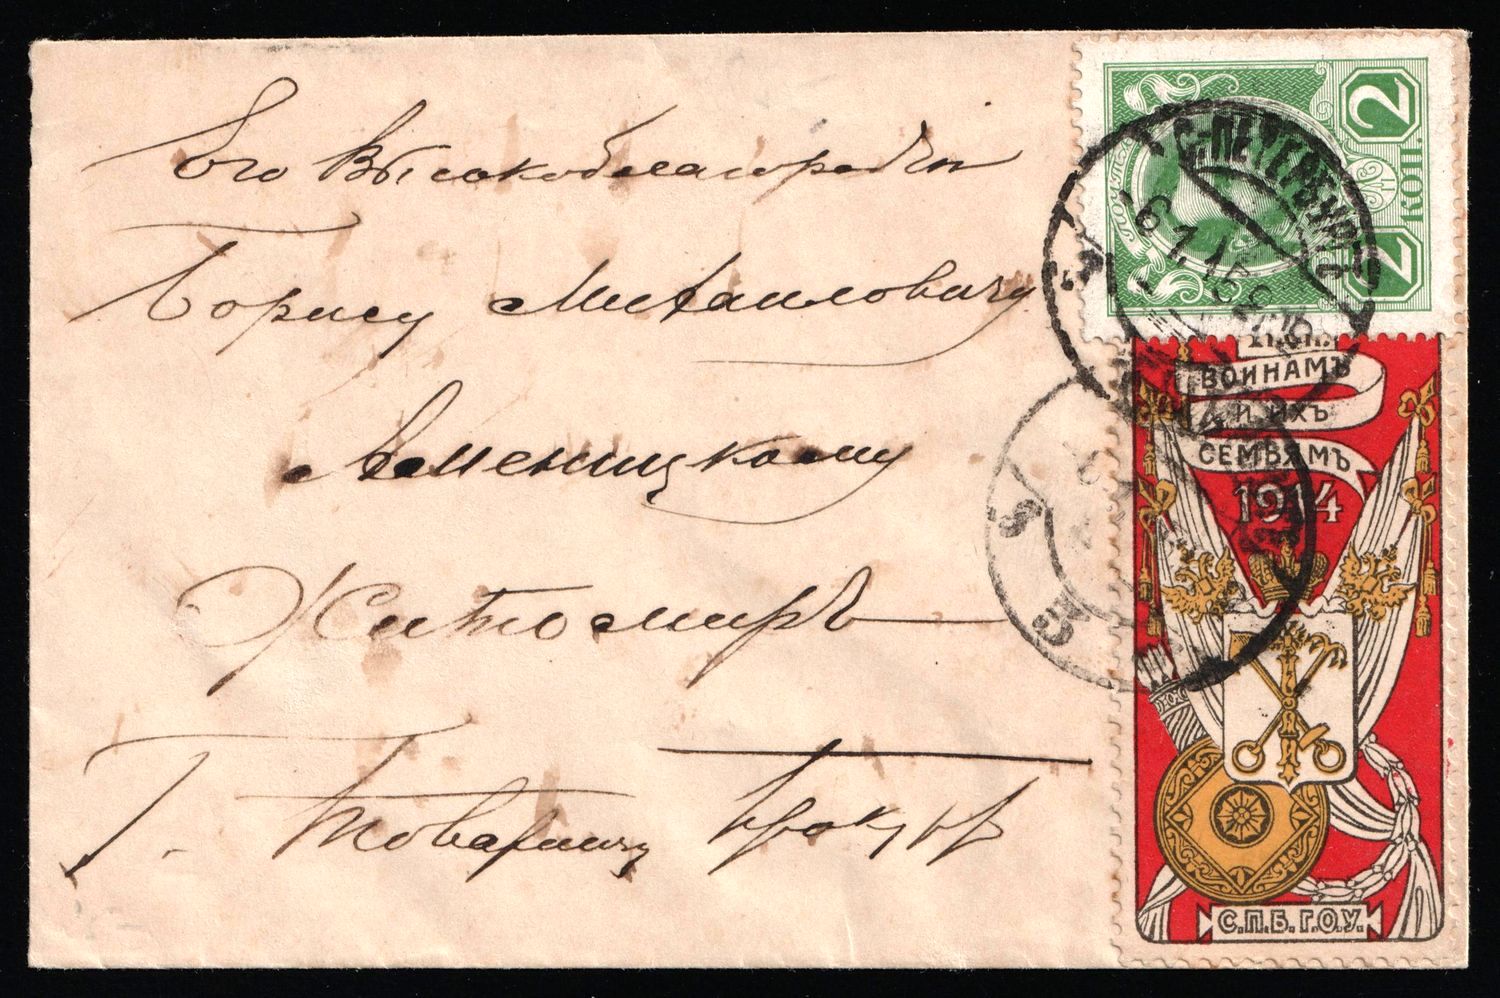 Его Высокоблагородiю
Борису Михаиловичу
Житомиръ
Г. Товарищу Прокур
2
КОП.
2
С-ПЕТЕРБУРГЪ
ВОИНАМЪ
И ИХЪ
СЕМЬЯМЪ
1914
С.П.Б.Г.О.У.